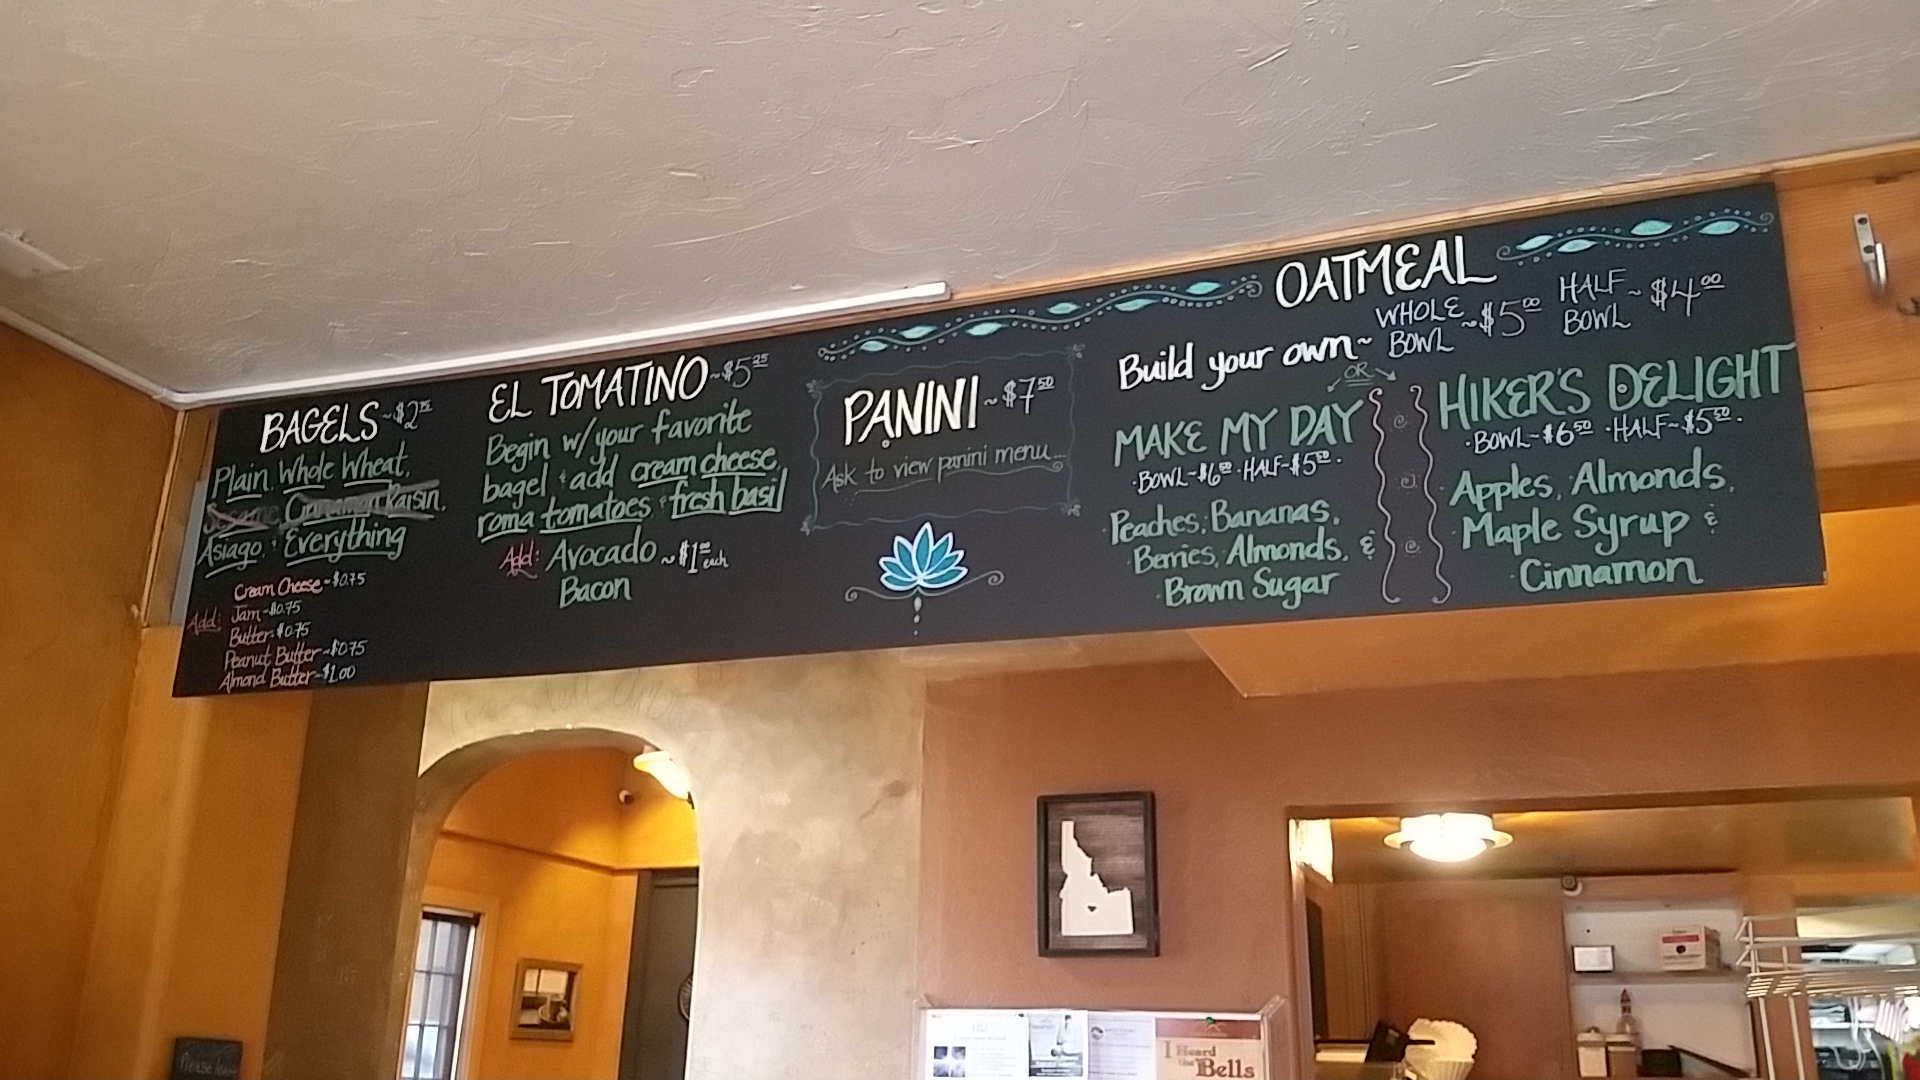 BAGELS ~ $2.75
Plain, Whole Wheat,
Sesame, Cinnamon Raisin,
Asiago, & Everything
Add:
Cream Cheese ~ $0.75
Jam ~ $0.75
Butter ~ $0.75
Peanut Butter ~ $0.75
Almond Butter ~ $1.00
EL TOMATINO ~ $5.25
Begin w/ your favorite
bagel & add cream cheese,
roma tomatoes & fresh basil
Add: Avocado ~ $1.00 each
Bacon
PANINI ~ $7.50
Ask to view panini menu...
OATMEAL
Build your own ~ WHOLE BOWL ~ $5.00 HALF BOWL ~ $4.00
OR
MAKE MY DAY
· BOWL ~ $6.50 · HALF ~ $5.50 ·
Peaches, Bananas,
Berries, Almonds, &
Brown Sugar
HIKER'S DELIGHT
· BOWL ~ $6.50 · HALF ~ $5.50 ·
Apples, Almonds,
Maple Syrup &
Cinnamon
I Heard
the Bells